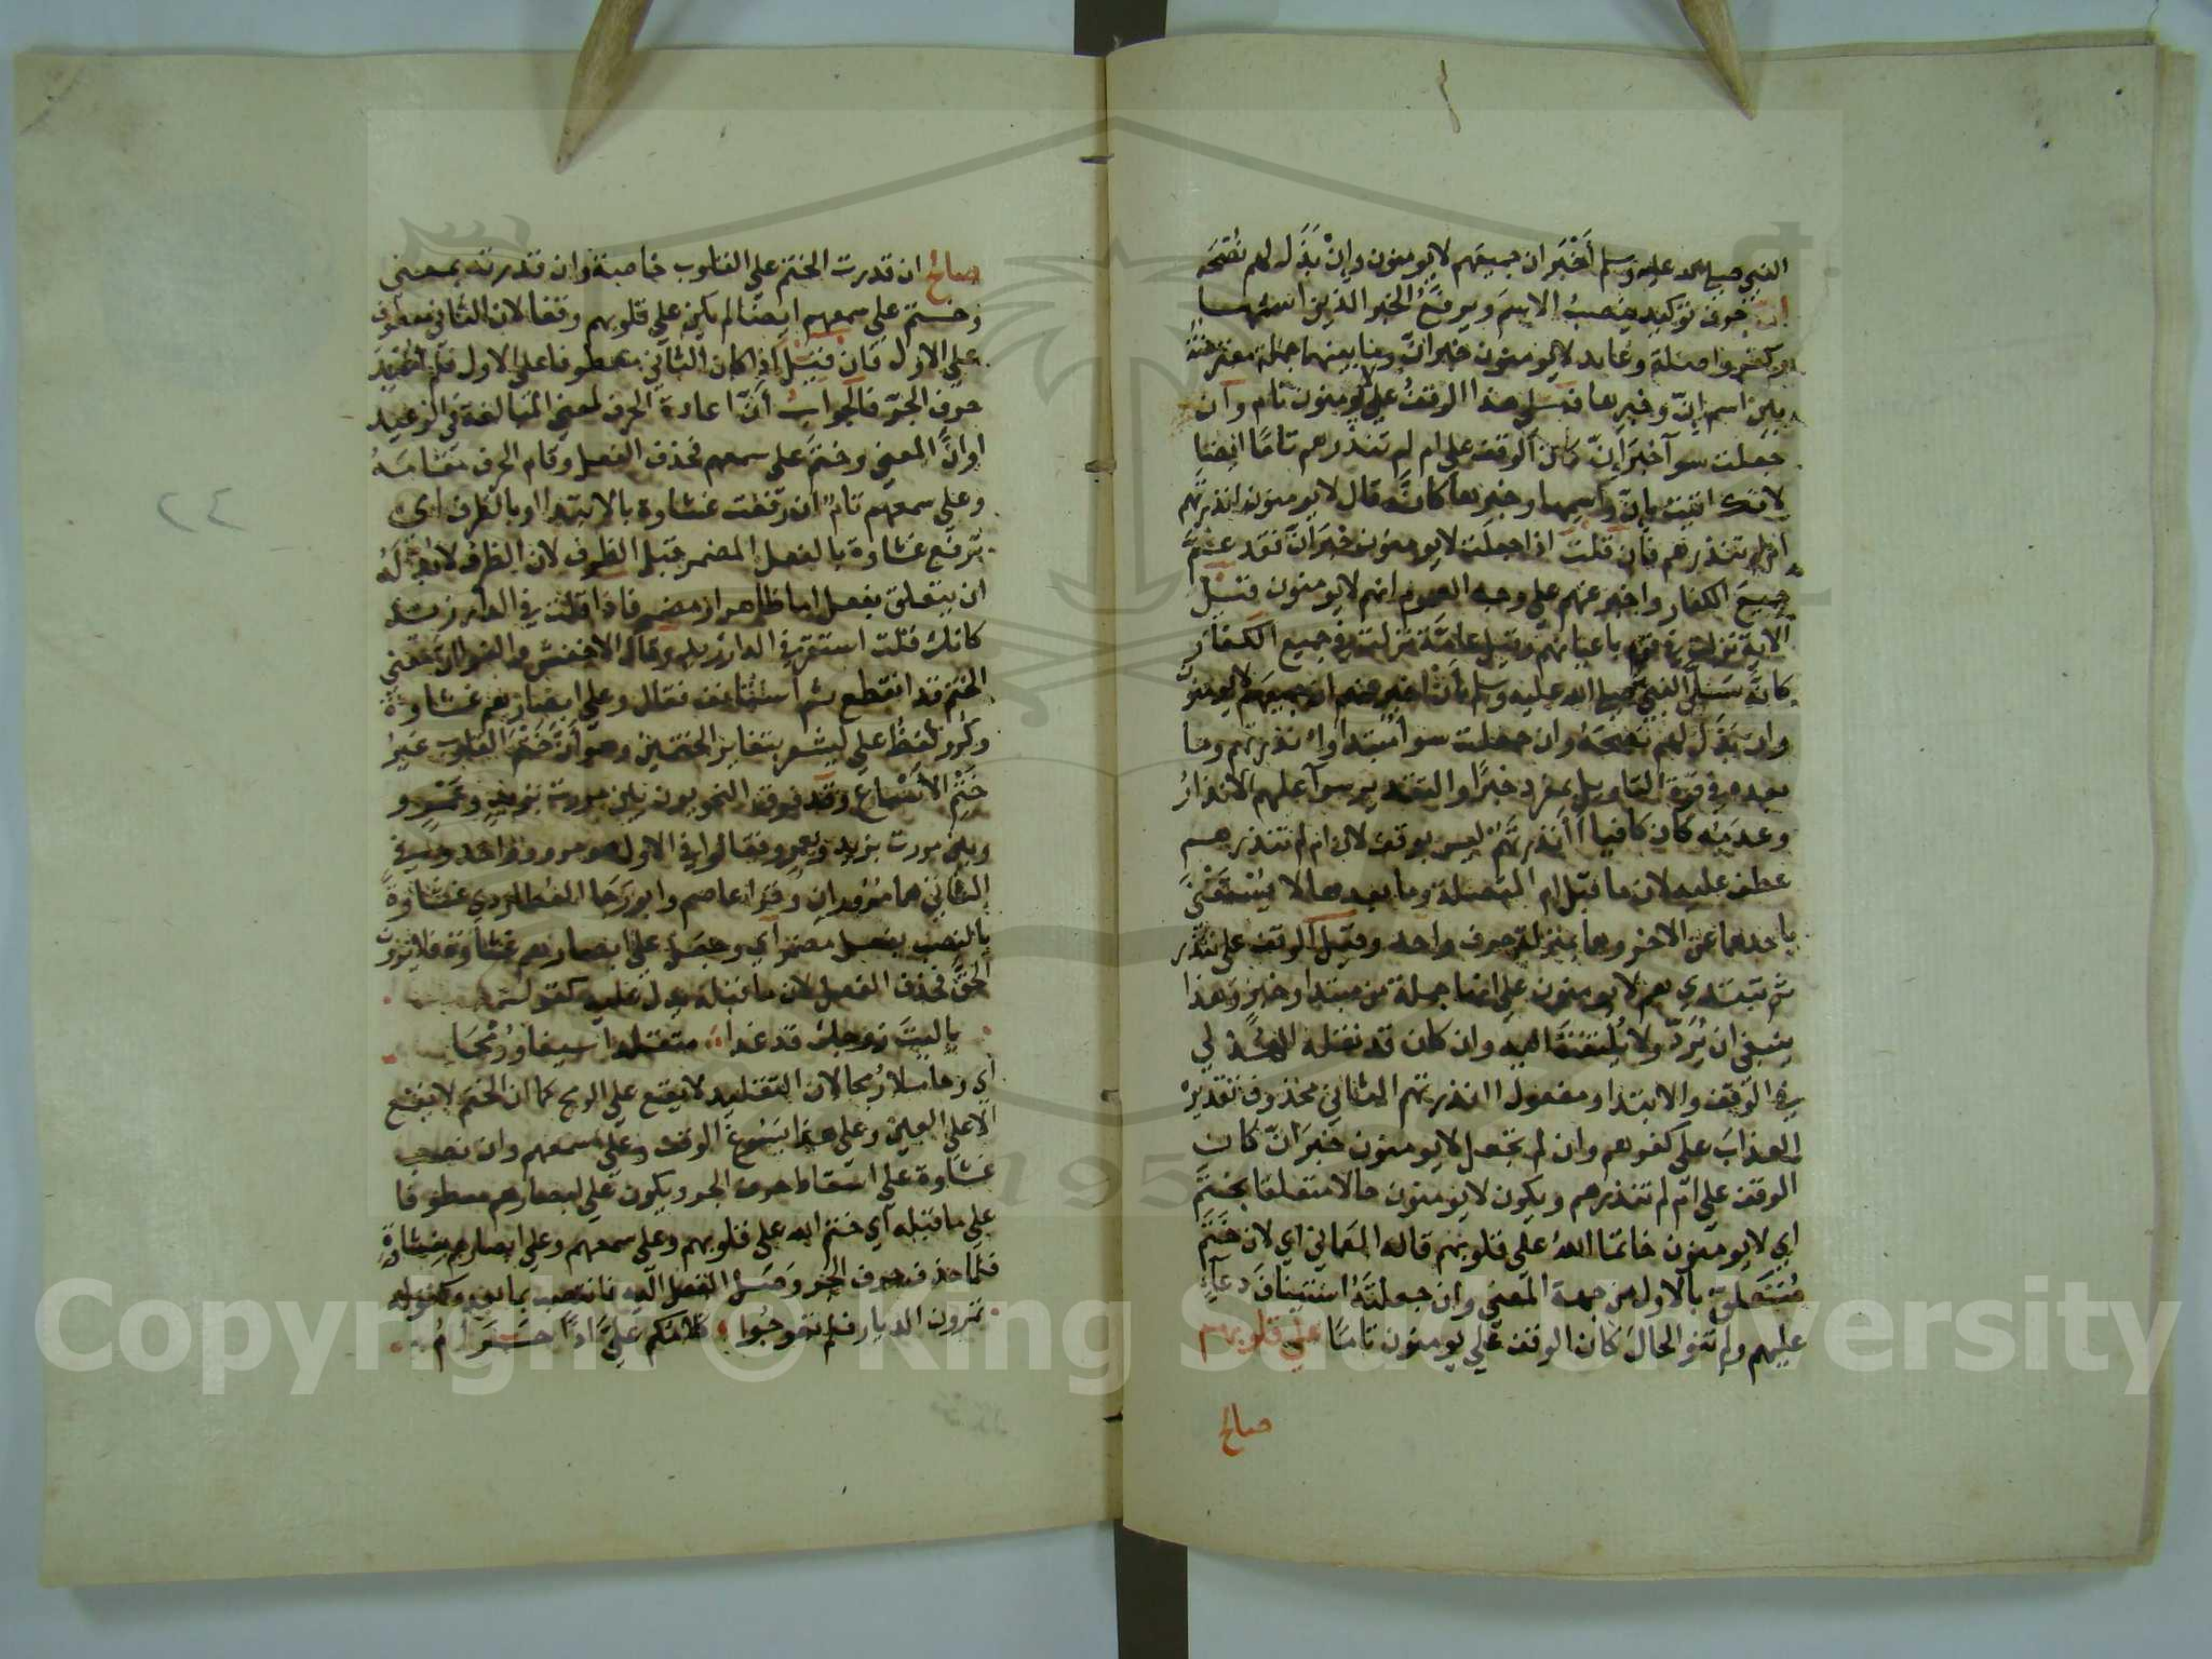 النبي صلى الله عليه وسلم أخبر ان جميعهم لا يومنون وإن بذل لهم نصحه
ان حرف توكيد ينصب الاسم ويرفع الخبر الذين اسمها
وكفروا صلة وعايد لا يومنون خبر ان وما بينهما جملة معترضة
بين اسم إن وخبرها فعلى هذا الوقف على لا يومنون تام وان
جعلت سوآ خبر إن كان الوقف على ام لم تنذرهم تاما ايضا
لانك اتيت بإن واسمها وخبرها كانه قال لا يومنون انذرتهم
ام لم تنذرهم فان قلت اذا جعلت لا يومنون خبر ان فقد عم
جميع الكفار واخبر عنهم على وجه العموم انهم لا يومنون قيل
الآية نزلت في قوم باعيانهم وقيل عامة نزلت في جميع الكفار
كانه سلى النبي صلى الله عليه وسلم بان اخبر عنهم ان جميعهم لا يومنون
وان بذل لهم نصحه وان جعلت سوآ مبتدا وانذرتهم وما
بعده في قوة التاويل بمفرد خبرا والتقدير سوآ عليهم الانذار
وعدمه كان كافيا أأنذرتهم ليس بوقف لان ام لم تنذرهم
عطف عليه لان ما قبل ام المتصلة وما بعدها لا يستغنى
باحدهما عن الاخر وهما بمنزلة حرف واحد وقيل الوقف على تنذر
ثم تبتدي هم لا يومنون على انها جملة من مبتدا وخبر وهذا
ينبغي ان يرد ولا يلتفت اليه وان كان قد نقله الهذلي
في الوقف والابتدا ومفعول اانذرتهم الثاني محذوف تقديره
العذاب على كفرهم وان لم تجعل لا يومنون خبر ان كان
الوقف على ام لم تنذرهم ويكون لا يومنون حالا متعلقا بختم
اي لا يومنون خاتما الله على قلوبهم قاله العماني اي لان ختم
متعلق بالاول من جهة المعنى وان جعلته استيناف دعآء
عليهم ولم تنو الحال كان الوقف على يومنون تاما على قلوبهم
صالح
صالح ان قدرت الختم على القلوب خاصة وان قدرته بمعنى
وختم على سمعهم ايضا لم يكن على قلوبهم وقفا لان الثاني معطوف
على الاول فان قيل اذا كان الثاني معطوفا على الاول فلم اعيد
حرف الجر فالجواب أن اعادة الحرف لمعنى المبالغة في الوعيد
او ان المعنى وختم على سمعهم فحذف الفعل وقام الحرف مقامه
وعلى سمعهم تام ان رفعت غشاوة بالابتدا او بالظرف اي
ترفع غشاوة بالفعل المضمر قبل الظرف لان الظرف لا بد له
ان يتعلق بفعل اما ظاهر او مضمر فاذا قلت في الدار زيد
كانك قلت استقر في الدار زيد وقال الاخفش والفرا ان معنى
الختم قد انقطع ثم استانف فقال وعلى ابصارهم غشاوة
وكرر لفظ على ليشعر بتغاير الختمين وهو أن ختم القلوب غير
ختم الأسماع وقد فرق النحويون بين مررت بزيد وعمرو
وبين مررت بزيد وبعمرو فقالوا في الاول هو مرور واحد وفي
الثاني هما مروران وقرا عاصم وابو رجا العطاردي غشاوة
بالنصب بفعل مضمر اي وجعل على ابصارهم غشاوة فلا يرون
الحق فحذف الفعل لان ما قبله يدل عليه كقوله
يا ليت زوجك قد غدا متقلدا سيفا ورمحا
اي وحاملا رمحا لان التقليد لا يقع على الرمح كما ان الختم لا يقع
الا على العين وعلى هذا يسوغ الوقف وعلى سمعهم وان نصب
غشاوة على اسقاط حرف الجر ويكون على ابصارهم معطوفا
على ما قبله اي ختم الله على قلوبهم وعلى سمعهم وعلى ابصارهم بغشاوة
فلما حذف حرف الجر وصل الفعل اليه فانتصب بما بعده كقوله
تمرون الديار فلم تعوجوا كلامكم علي اذا حرام
٢٤
Copyright © King Saud University
1957